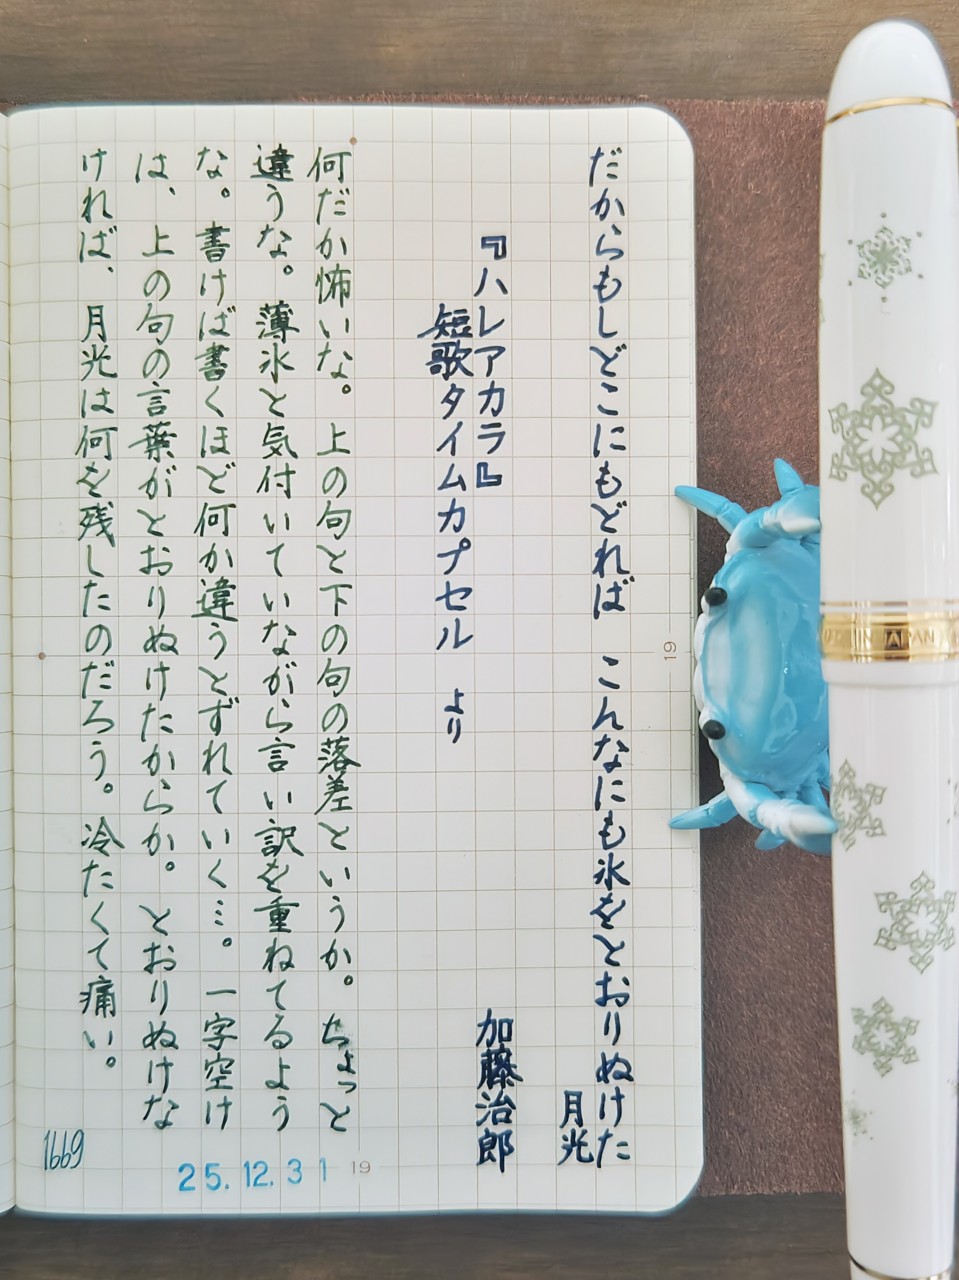 だからもしどこにもどれば　こんなにも氷をとおりぬけた
月光
『ハレアカラ』
短歌タイムカプセル　より
加藤治郎
何だか怖いな。上の句と下の句の落差というか。ちょっと
違うな。薄氷と気付いていながら言い訳を重ねてるよう
な。書けば書くほど何か違うとずれていく…。一字空け
は、上の句の言葉がとおりぬけたからか。とおりぬけな
ければ、月光は何を残したのだろう。冷たくて痛い。
1669
25.12.31
19
19
MADE IN JAPAN